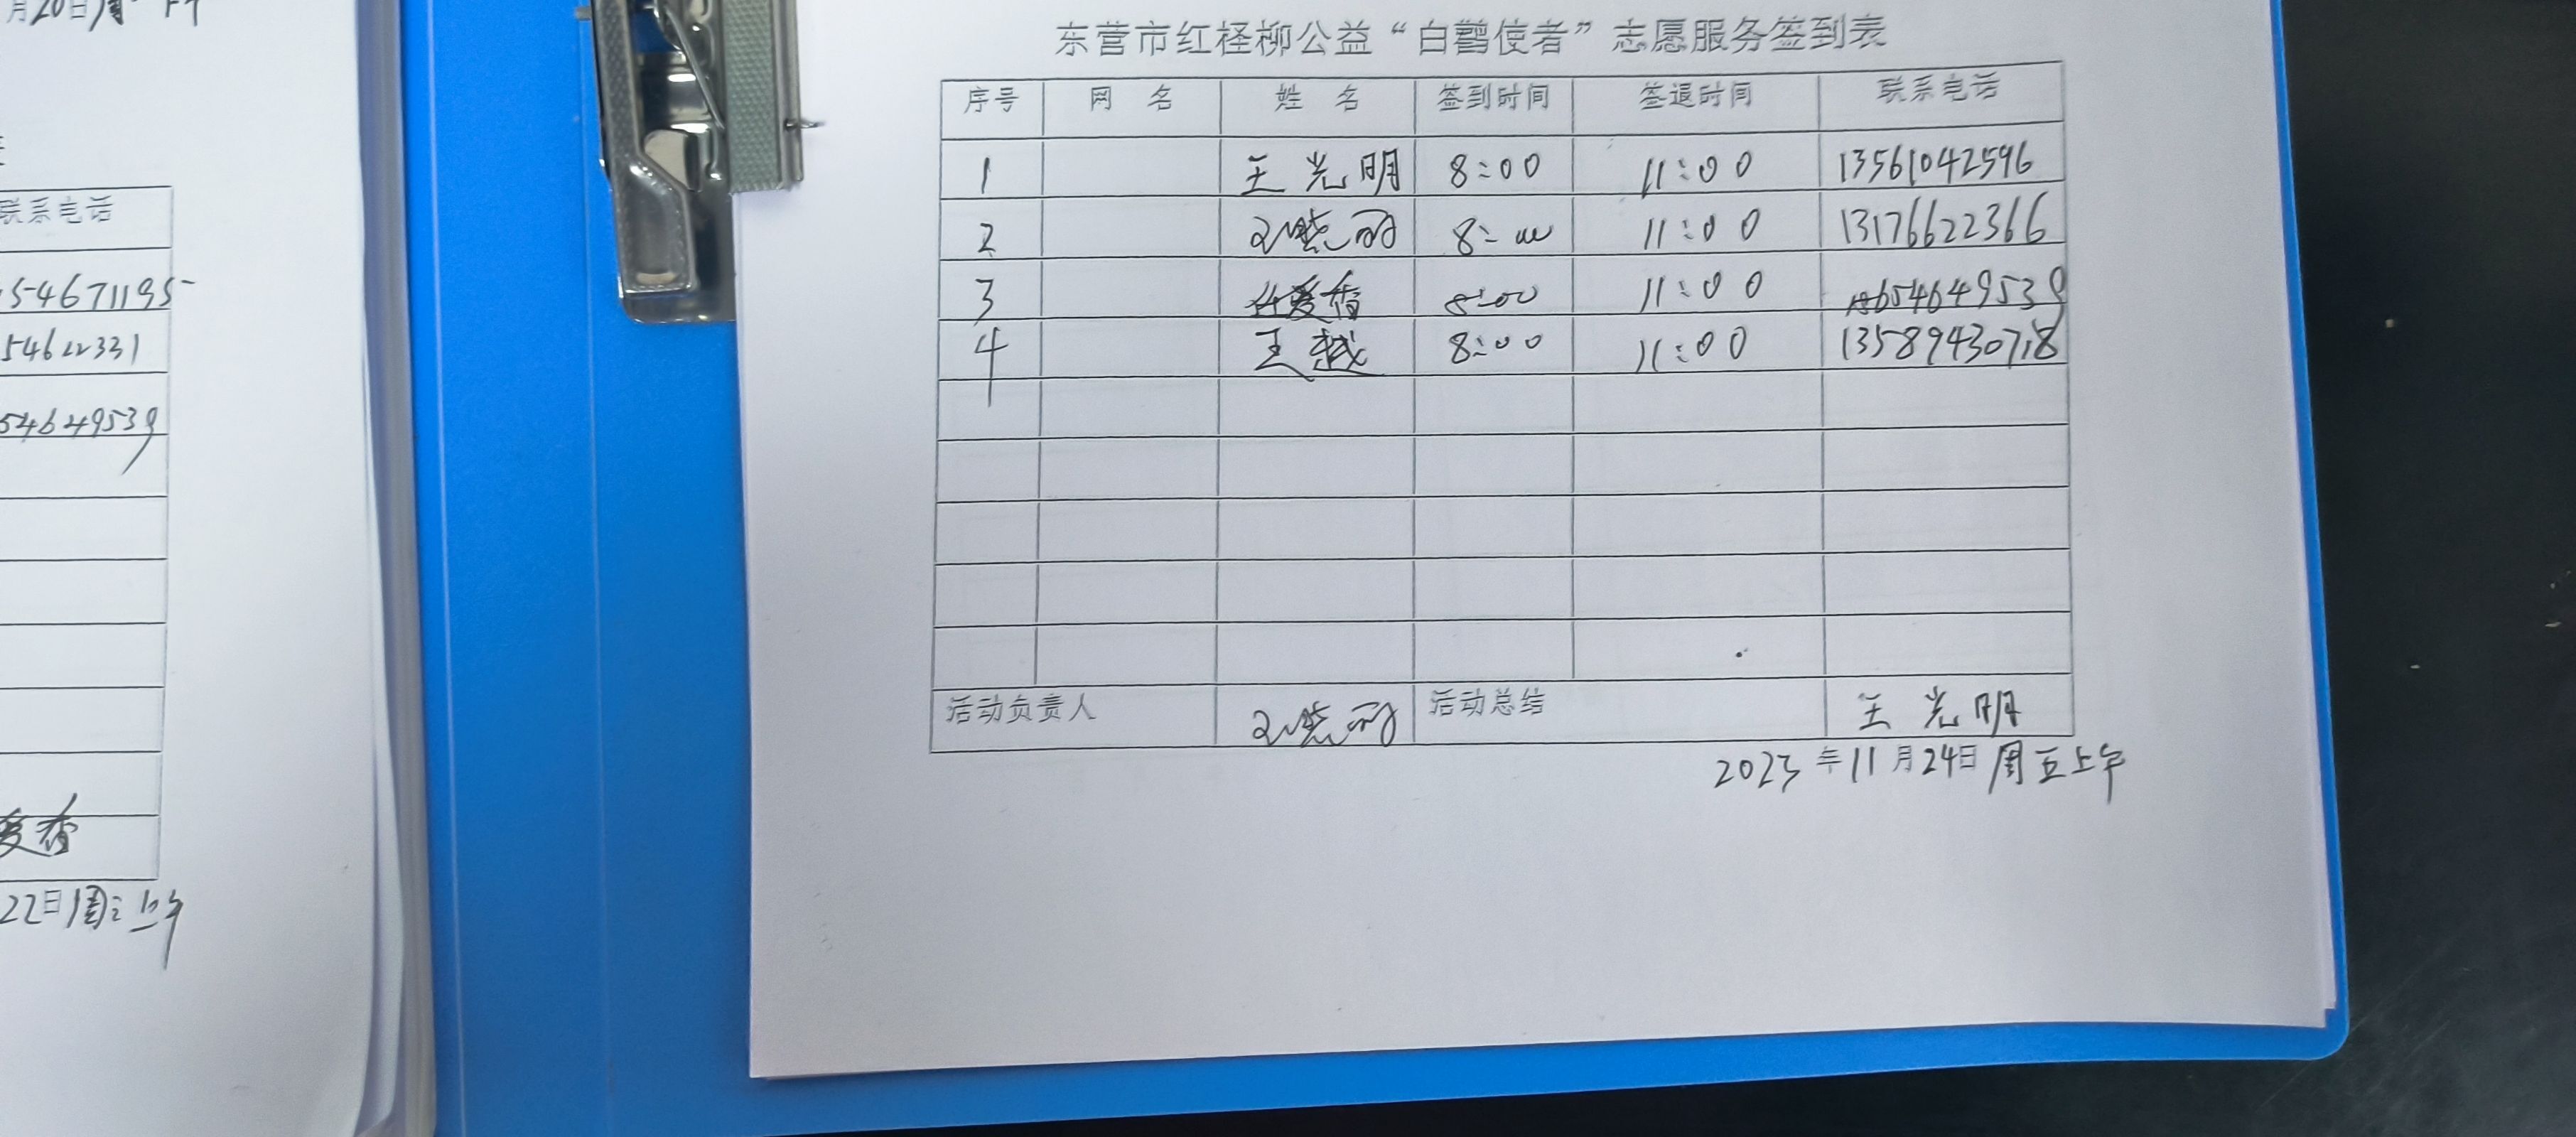 月20日周 上午
联系电话
154671195
54622331
54649539
爱香
22日周三上午
东营市红柽柳公益“白鹳使者”志愿服务签到表
序号 网 名 姓 名 签到时间 签退时间 联系电话
1 王光明 8:00 11:00 13561042596
2 8:00 11:00 13176622366
3 任爱香 8:00 11:00 18654649539
4 王越 8:00 11:00 13589430718
活动负责人 活动总结 王光明
2023年11月24日周五上午